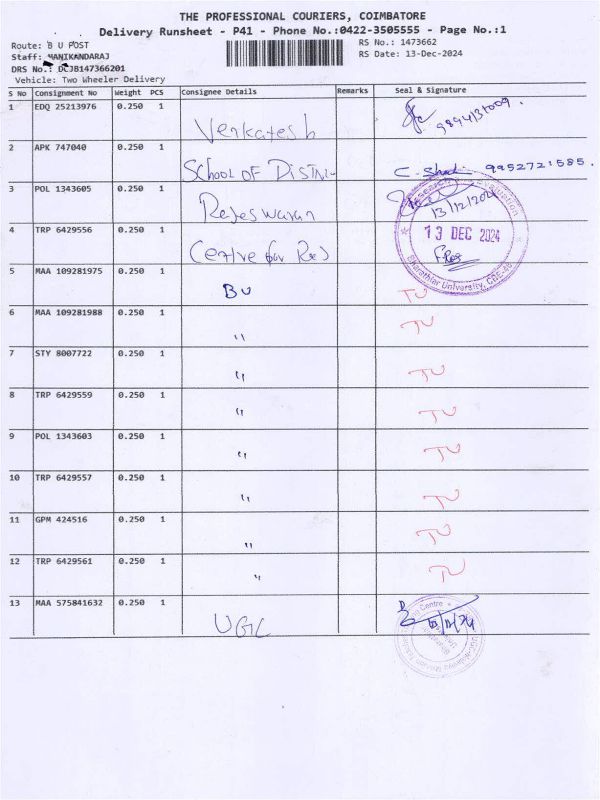 THE PROFESSIONAL COURIERS, COIMBATORE
Delivery Runsheet - P41 - Phone No.:0422-3505555 - Page No.:1
Route: B U POST
RS No.: 1473662
Staff: MANIKANDARAJ
RS Date: 13-Dec-2024
DRS No.: DCJB147366201
Vehicle: Two Wheeler Delivery
S No Consignment No Weight PCS Consignee Details Remarks Seal & Signature
1 EDQ 25213976 0.250 1 Venkatesh
2 APK 747040 0.250 1 School OF Distn- 9952721585.
3 POL 1343605 0.250 1 Rajeswaran 13/12/2024
4 TRP 6429556 0.250 1 Centre for Res 13 DEC 2024
Evaluation
Bharathiar University, CBE-46
5 MAA 109281975 0.250 1 BU TU
6 MAA 109281988 0.250 1 " TU
7 STY 8007722 0.250 1 " TU
8 TRP 6429559 0.250 1 " TU
9 POL 1343603 0.250 1 " TU
10 TRP 6429557 0.250 1 " TU
11 GPM 424516 0.250 1 " TU
12 TRP 6429561 0.250 1 " TU
13 MAA 575841632 0.250 1 UGC
Centre